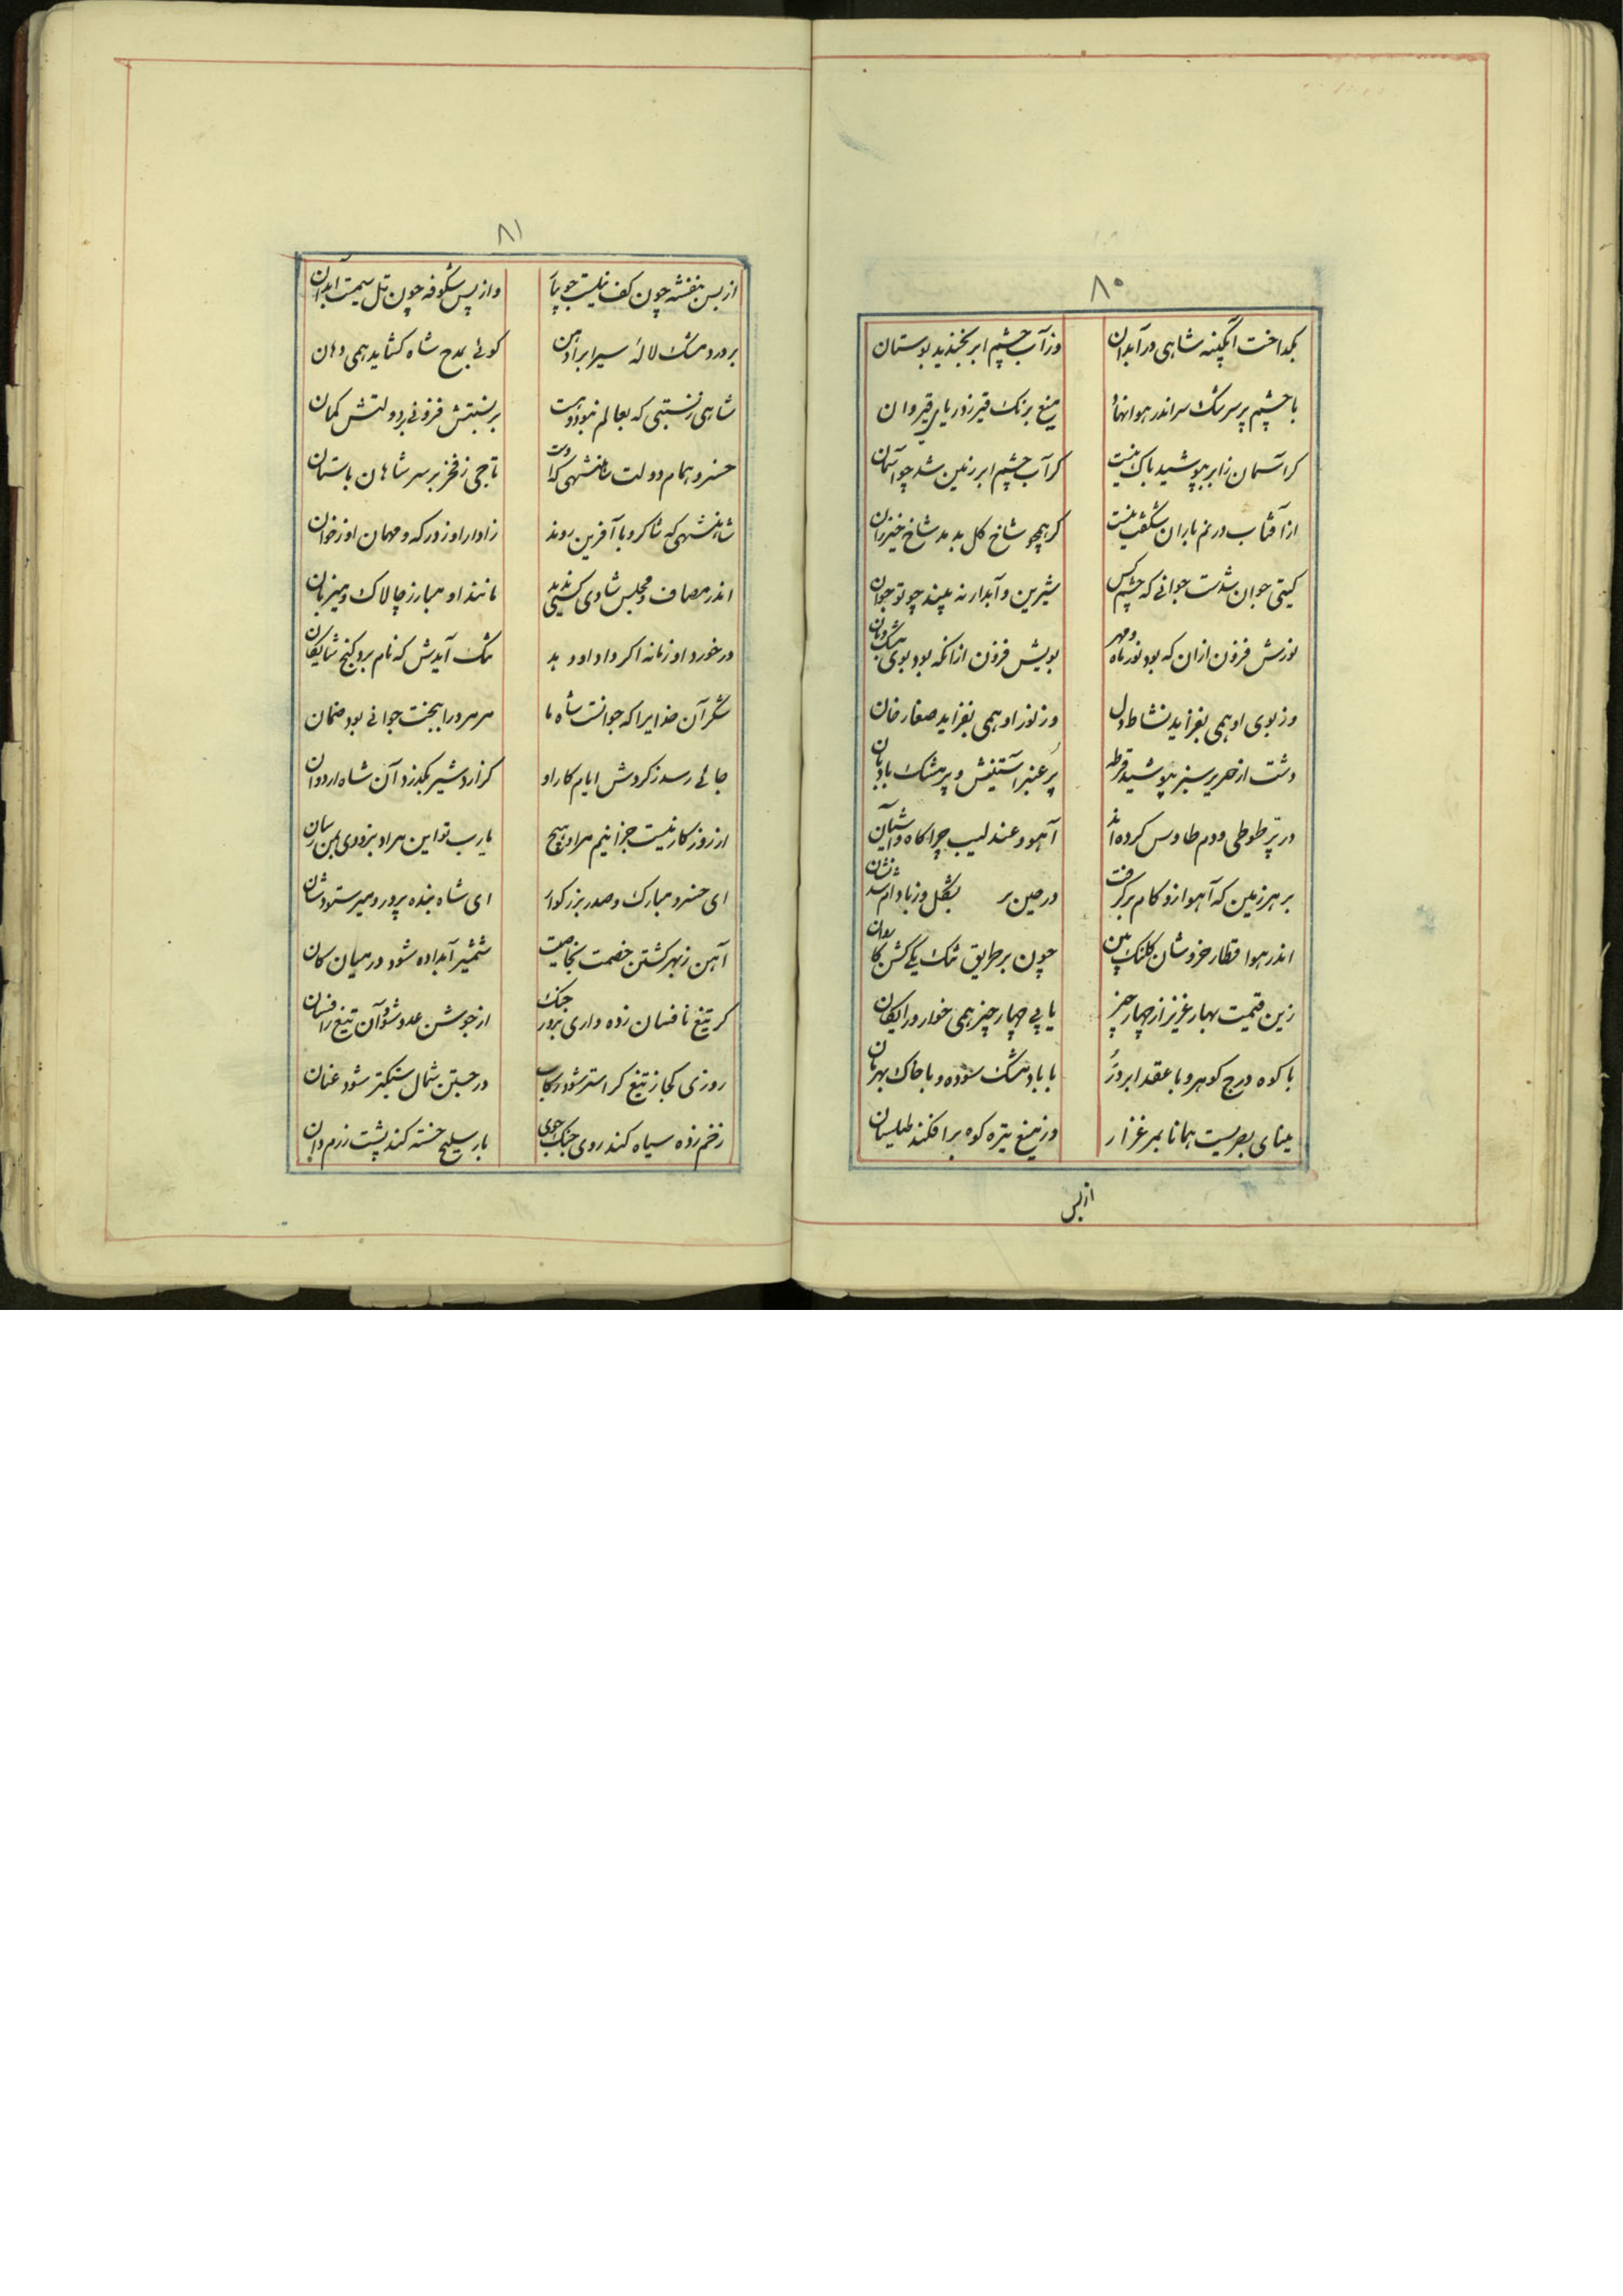 ۸۰
بگداخت آبگینه شاهی در آبدان وز آب چشم ابر بخندید بوستان
با چشم پر سرشک سر اندر هوا نهاد میغ برنک قیر ز دریای قیروان
کر آسمان ز ابر بپوشید باک نیست کز آب چشم ابر زمین شد چو آسمان
از آفتاب در نم باران شگفت نیست کر همچو شاخ کل بدمد شاخ خیزران
کیتی جوان شدست جوانی که چشم کس شیرین و آبدار نه بیند چو تو جوان
نورش فزون ازان که بود نور ماه و مهر بویش فزون ازانکه بود بوی مشک و بان
وز بوی او همی بفزاید نشاط دل وز نور او همی بفزاید صفار خان
دشت از حریر سبز بپوشید قرطه پر عنبر آستینش و پر مشک بادبان
در پر طوطی و دم طاوس کرده اند آهو و عندلیب چراکاه و آشیان
بر هر زمین که آهو ازو کام برکرفت در حین بر بشکل وز بادام شد نشان
اندر هوا قطار خروشان کلنک بین چون بر طریق تنک یکی کشن کاروان
زین قیمت بهار عزیز از چهار چیز یابی چهار چیز همی خوار و رایکان
با کوه درج کوهر و با عقد ابر در با باد مشک سوده و با خاک بهرمان
مینای بصریست همانا بمرغزار وز میغ تیره کوه برافکند طیلسان
از بس
۸۱
از بس بنفشه چون کف نیلیست جویبار و از پس شکوفه چون تل سیمست آبدان
بر ورد مشک لالهٔ سیراب را دهن کوئی بمدح شاه کشاید همی دهان
شاهی ز نسبتی که بعالم نبود و هست بر نسبتش فزونی بر دولتش کمان
خسرو همام دولت شاهنشهی که اوست تاجی ز فخر بر سر شاهان باستان
شاهنشهی که شاکر و با آفرین روند زاوار او ز درکه و مهمان او ز خوان
اندر مصاف و مجلس شادی کسی ندید مانند او مبارز چالاک و میزبان
در خورد او زمانه اکر داد او دهد تنک آیدش که نام برد کنج شایکان
شکر آن خدایرا که جوانست شاه ما مر مرو را ببخت جوانی بود ضمان
جائی رسد ز کردش ایام کار او کز اردشیر بکذرد آن شاه اردوان
از روزکار نیست جز اینم مراد هیچ یا رب تو این مراد بزودی بمن رسان
ای خسرو مبارک و صدر بزرکوار ای شاه بنده پرور و میر ستوده شان
آهن ز بهر کشتن خصمت بخاصیت شمشیر آبداده شود در میان کان
کر تیغ نافسان زده داری بروز جنک از جوشن عدو شود آن تیغ را فسان
روزی کجا ز تیغ کران‌تر شود رکاب در جستن شمال سبکتر شود عنان
زخم زره سیاه کند روی جنک جوی بار سلیح خسته کند پشت رزم دان